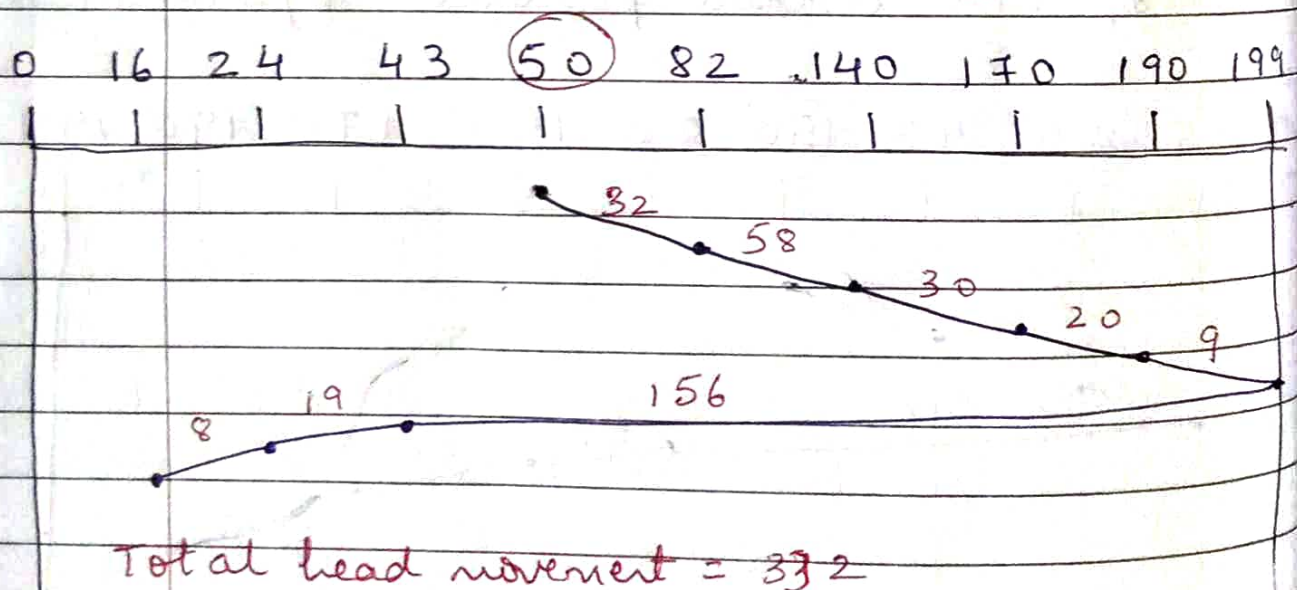 0 16 24 43 50 82 140 170 190 199
32
58
30
20
9
156
19
8
Total head movement = 332